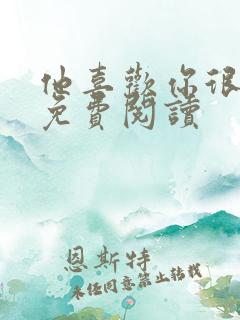 他喜歡你很
免費閱讀
恩斯特
未经同意禁止转载